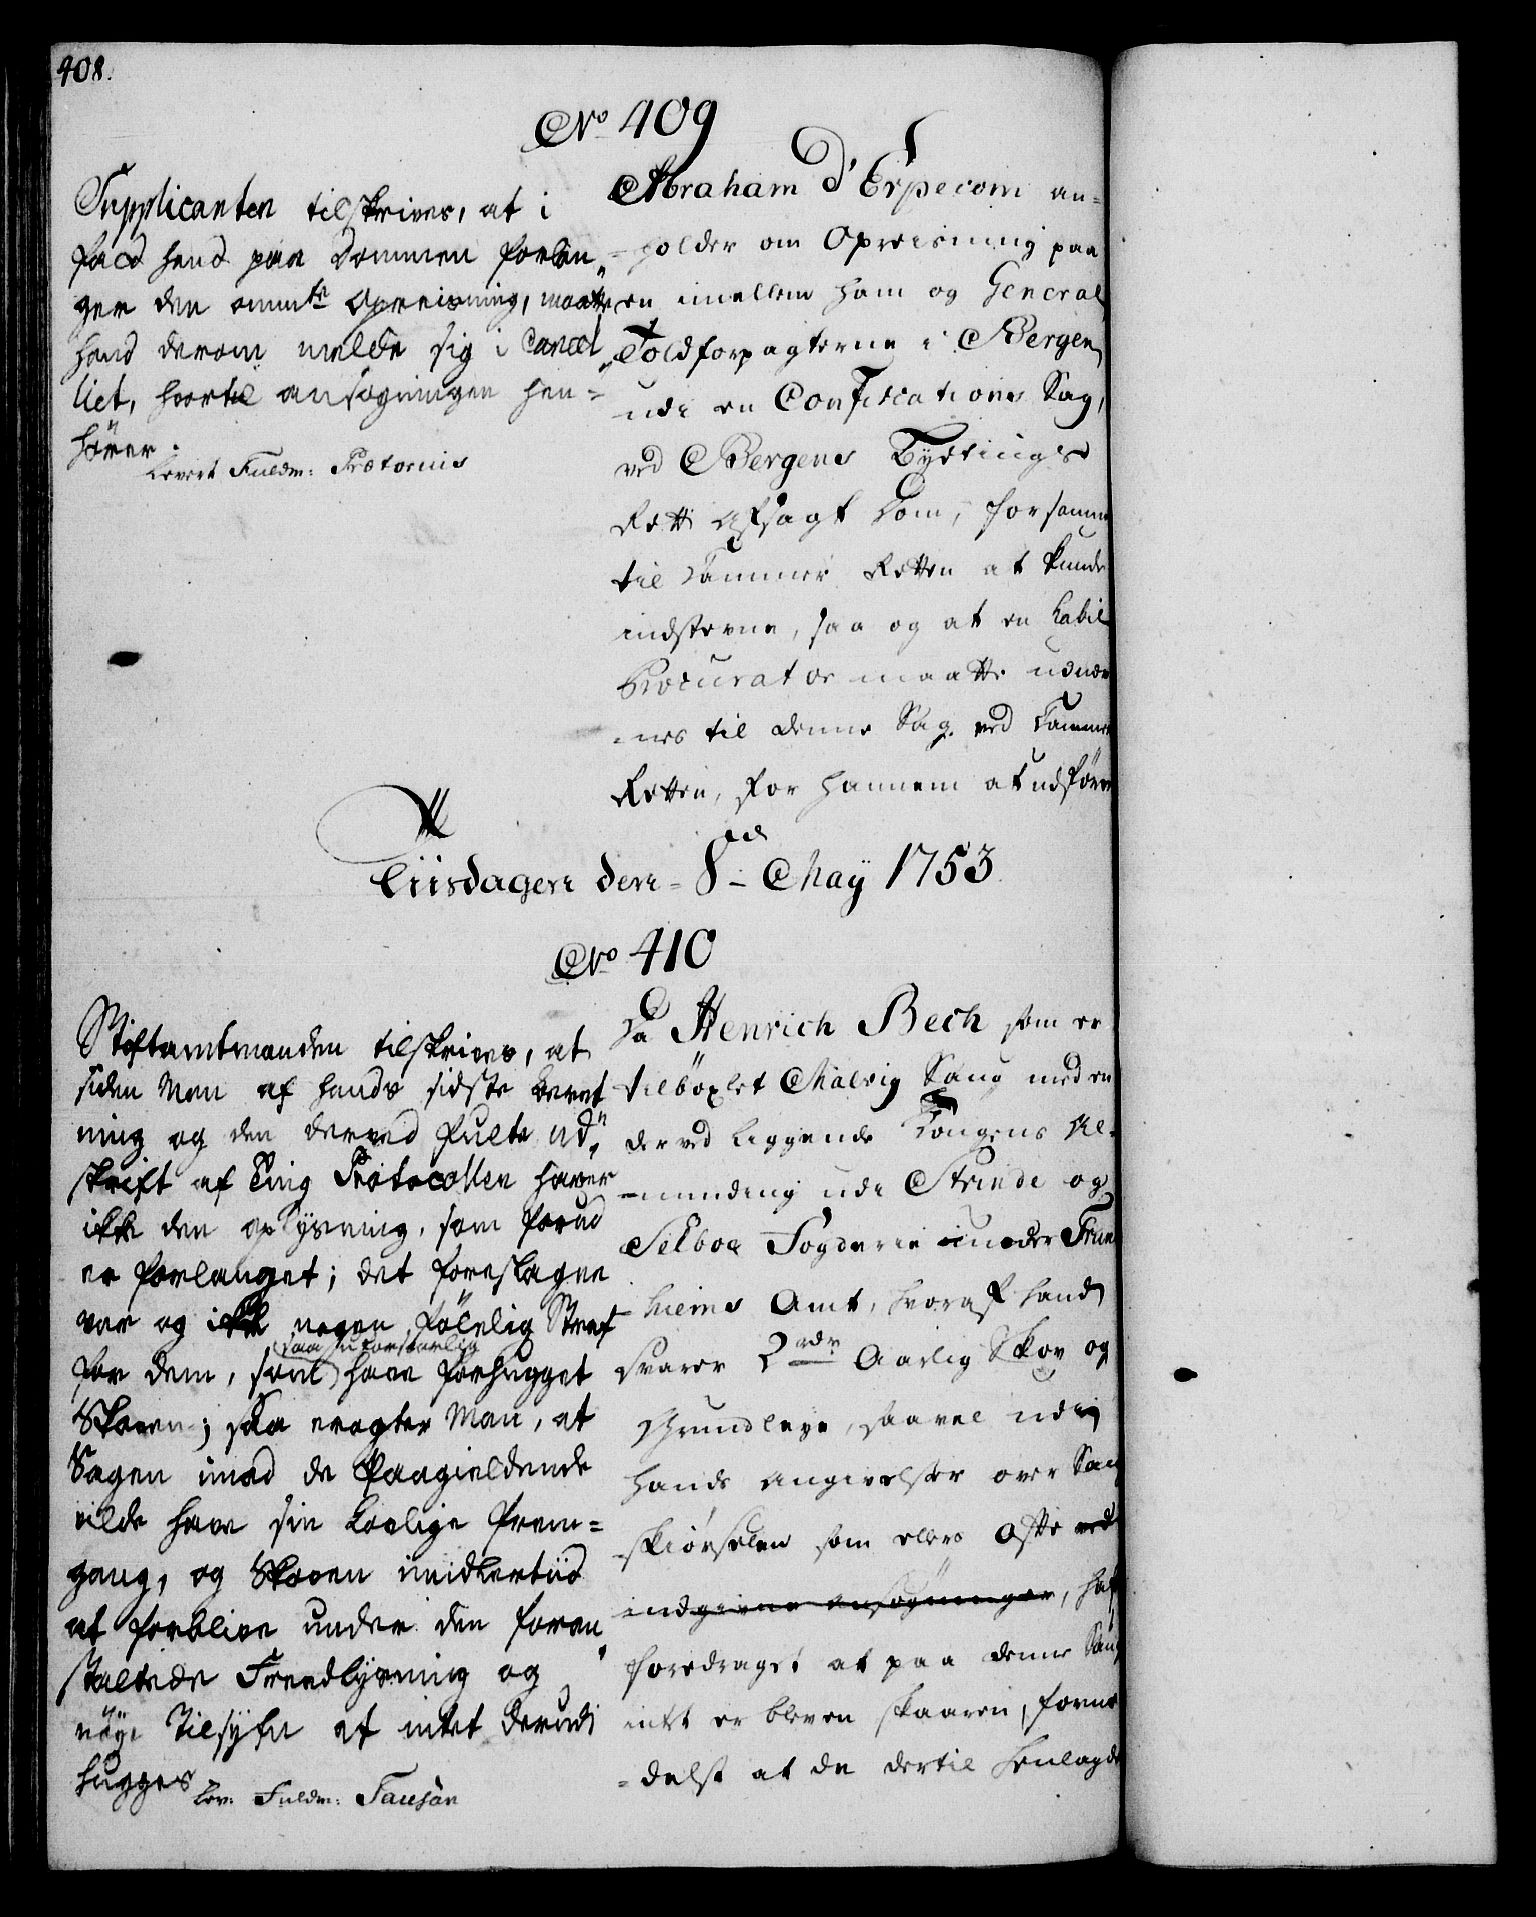 408.
No 409
Supplicanten tilskrives, at i
fald hand paa Dommen forlan„
ger den ommte Opreisning, maatte
hand derom melde sig i Cancel„
liet, hvortil ansøgningen hen=
hører.
Levert Fuldm: Prætorius
Abraham d'Erpecom an=
=holder om Opreisning paa
en imellem ham og General
Toldforpagterne i Bergen
udi en Confiscations Sag,
ved Bergens Byetings
Rett afsagt Dom, for samme
til Cammer Retten at kunde
indstevne, saa og at en habil
Procurator maatte udnæv
=nes til denne Sag ved Cammer
Retten, for hannem at udføre
Tiisdagen den 8de May 1753
No 410
Stiftamtmanden tilskrives, at
siden Man af hands sidste beret
ning og den derved fulte ud„
skrift af Ting Protocollen haver
ikke den oplysning, som forud
er forlanget; det foreslagne
var og ikke nogen følelig Straf
saa uforsvarlig
for dem, som have forhugget
Skoven; saa eragter Man, at
Sagen imod de Paagieldende
vilde have sin Lovlige frem=
gang, og Skoven imidlertiid
at forblive under den foran„
staltede Freedlysning og
nøye Tilsyn at intet derudi
hugges
Lev: Fuldm: Tausan
Da Henrich Bech som er
tilbøxlet Malvig Saug med en
der ved liggende Kongens Al=
=minding udi Strinde og
Selboe Fogderie under Trun
=hiems Amt, hvoraf hand
svarer 2 rdr Aarlig Skov og
Grundleye, saavel udi
hands angivelser over Saug
=skiørselen som ellers ofte ved
indgivne ansøgninger, haf
foredraget at paa denne Saug
intet er bleven skaaren, forme
=delst at de dertil henlagde